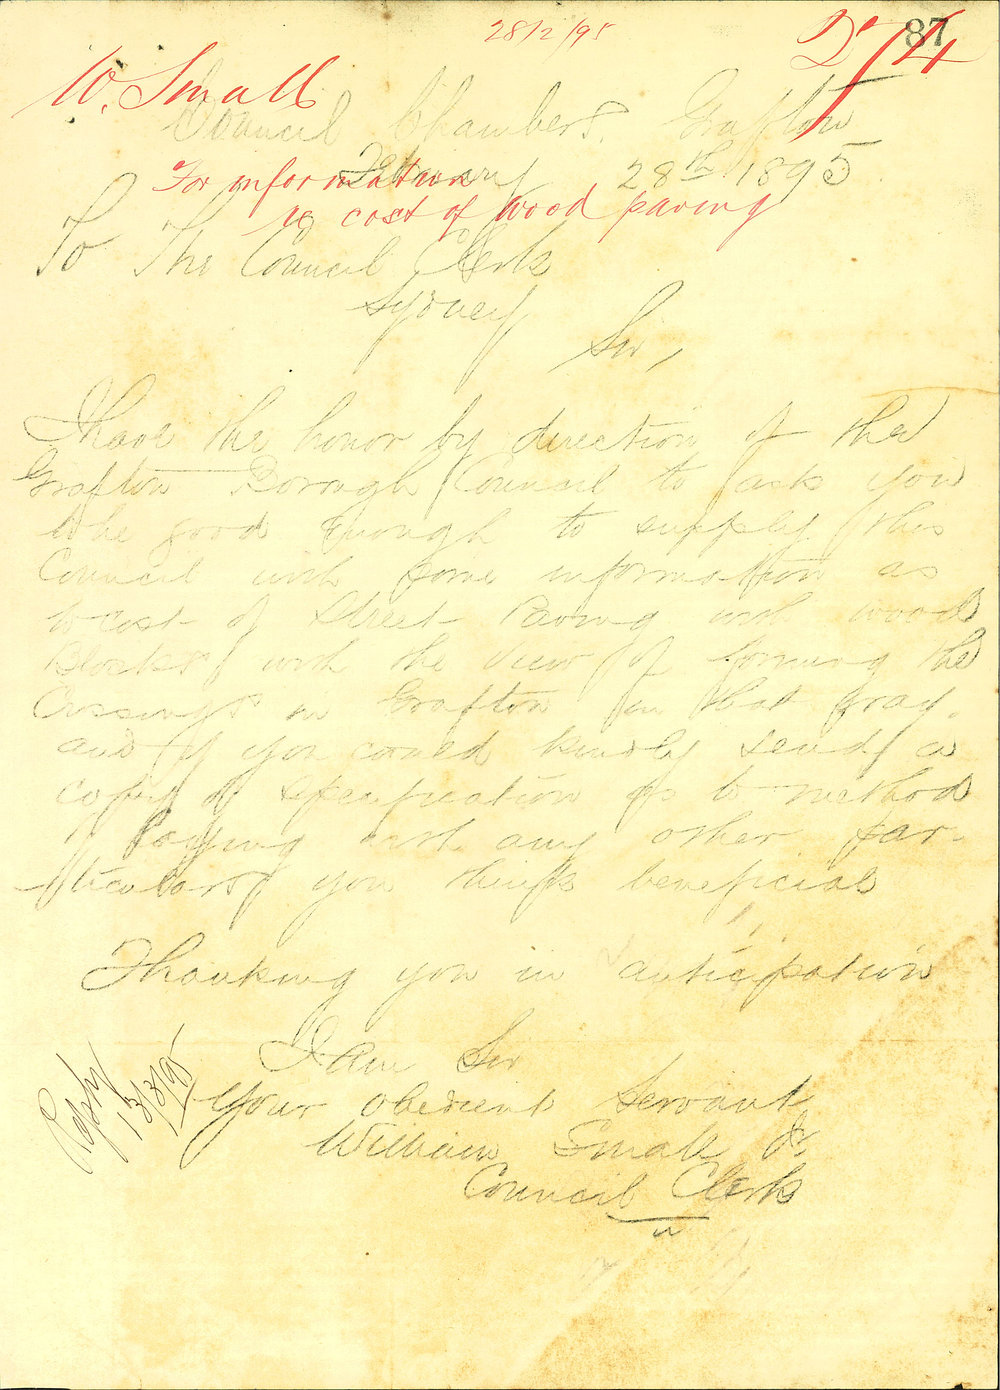 28/2/95
87
W. Small
Council Chambers, Grafton
February 28th 1895
For information
re cost of Wood paving
To The Council Clerk
Sydney
Sir,
I have the honor by direction of the
Grafton Borough Council to ask you
to be good enough to supply this
Council with some information as
to cost of Street Paving with wood
Blocks with the view of forming the
Crossings in Grafton in that way.
and if you could kindly send a
copy of specification as to method
of Paying with any other par-
ticulars you think beneficial
Thanking you in anticipation
I am Sir
Your obedient Servant
William Small Jr.
Council Clerk
Reply
13/3/95